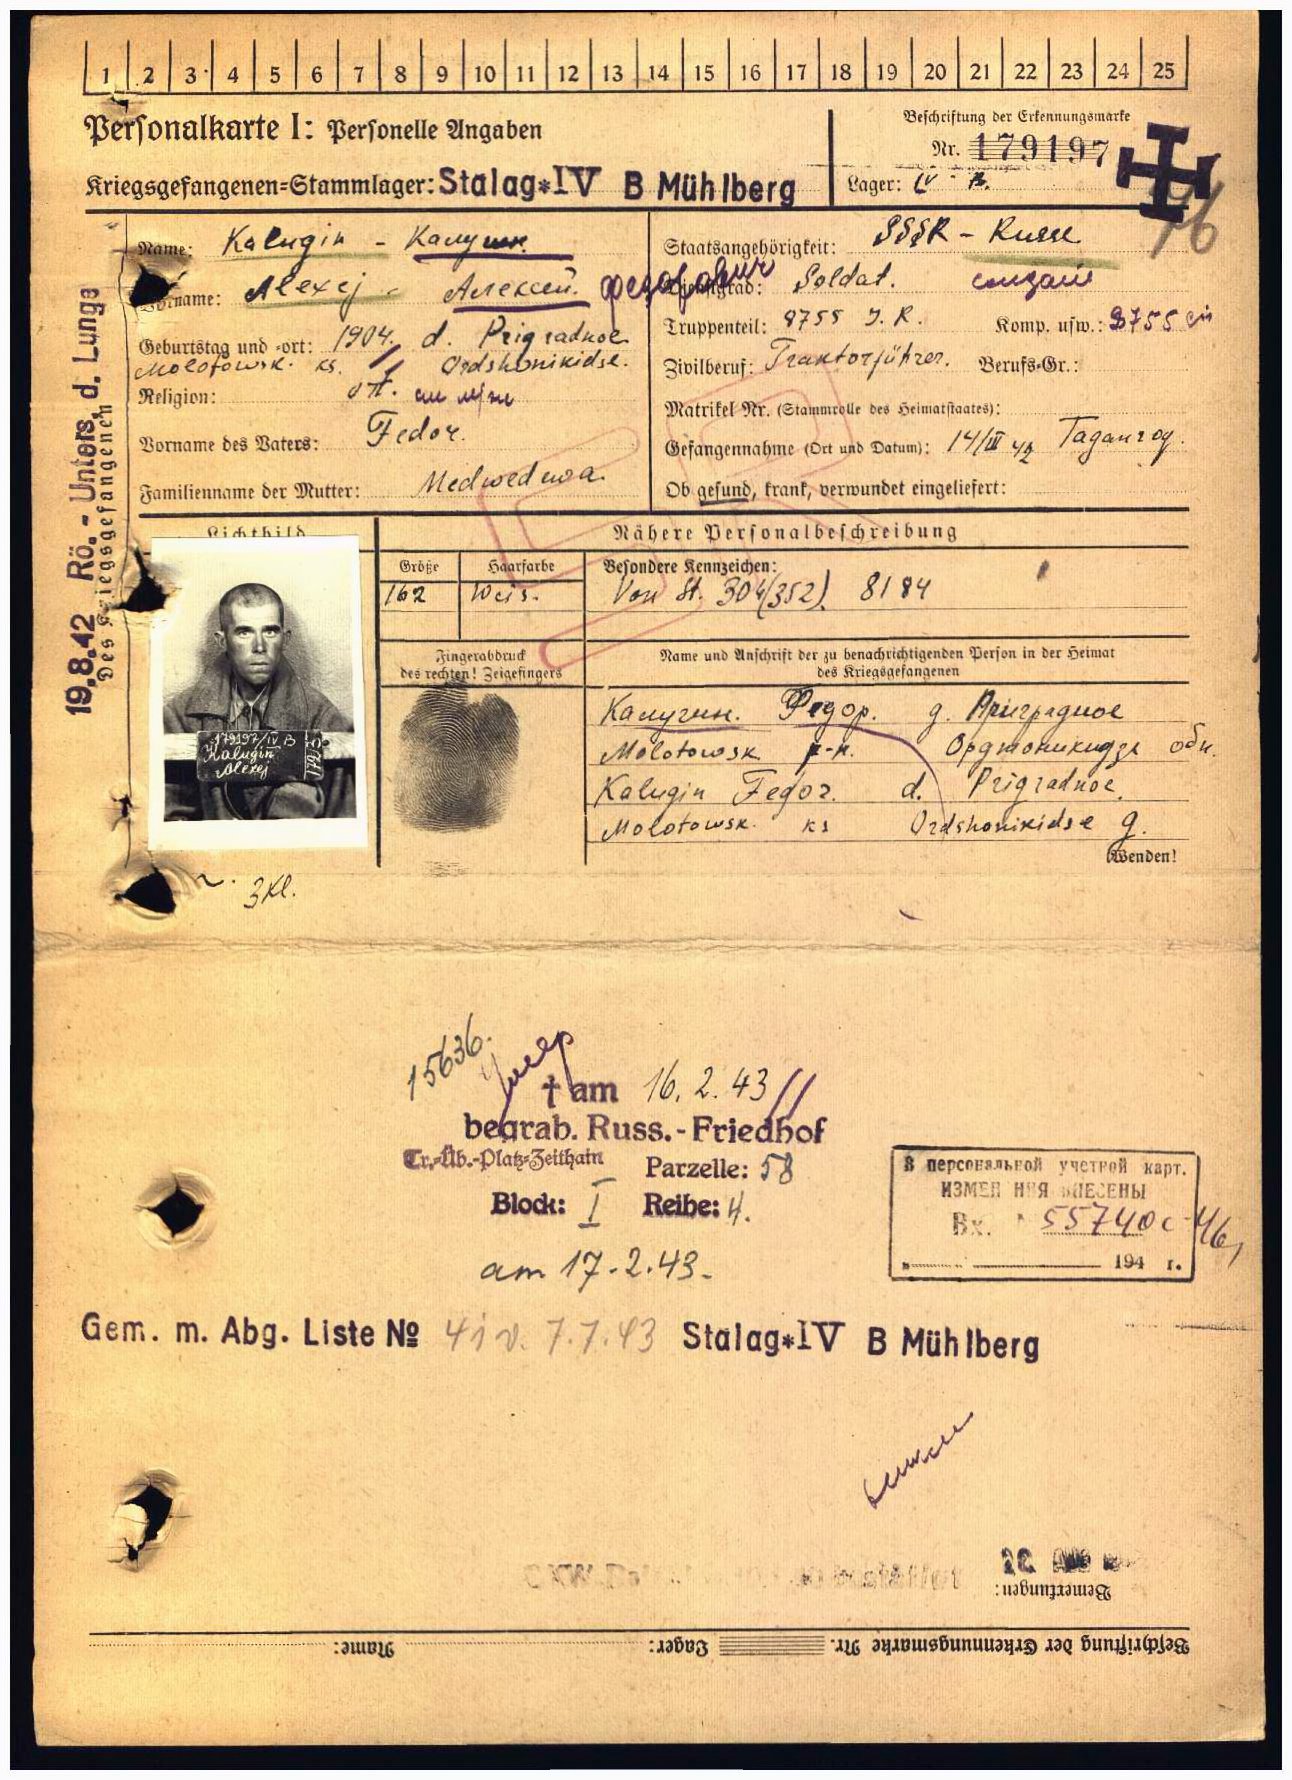 1 2 3 4 5 6 7 8 9 10 11 12 13 14 15 16 17 18 19 20 21 22 23 24 25
Personalkarte I: Personelle Angaben
Beschriftung der Erkennungsmarke
Nr. 179197
Kriegsgefangenen=Stammlager: Stalag*IV B Mühlberg
Lager: IV B.
76
Name: Kalugin - Калугин
Staatsangehörigkeit: SSSR - Russe
Vorname: Alexej - Алексей Федорович
Dienstgrad: Soldat. солдат
Geburtstag und -ort: 1904. d. Prigradnoe
Molotowsk. ks. Ordshonikidse.
Truppenteil: 8755 J.R. Komp. usw.: 8755
Religion: ort.
Zivilberuf: Traktorführer. Berufs=Gr.:
Matrikel Nr. (Stammrolle des Heimatstaates):
Vorname des Vaters: Fedor.
Gefangennahme (Ort und Datum): 14/III 42 Taganrog.
Familienname der Mutter: Medwedewa
Ob gesund, krank, verwundet eingeliefert:
19.8.42 Rö.-Unters. d. Lunge
Des Kriegsgefangenen
Lichtbild
Nähere Personalbeschreibung
Größe Haarfarbe Besondere Kennzeichen:
162 Weis. Von St. 304(352). 8184
Fingerabdruck
des rechten! Zeigefingers
Name und Anschrift der zu benachrichtigenden Person in der Heimat
des Kriegsgefangenen
179197/IV B
Kalugin
Alexej
Калугин. Федор. д. Приградное
Molotowsk р-н. Орджоникидзе обл.
Kalugin Fegor. d. Prigradnoe.
Molotowsk. ks Ordshonikidse g.
Wenden!
3 Kl.
15636.
умер
† am 16.2.43
begrab. Russ.-Friedhof
Tr.-Üb.-Platz-Zeithain Parzelle: 58
Block: I Reihe: 4.
am 17.2.43.
В персональной учетной карт.
ИЗМЕНЕНИЯ ВНЕСЕНЫ
Вх. № 55740с-46
194 г.
Gem. m. Abg. Liste № 4 i v. 7.7.43 Stalag*IV B Mühlberg
Bemerkungen:
Beschriftung der Erkennungsmarke Nr. Lager: Name: